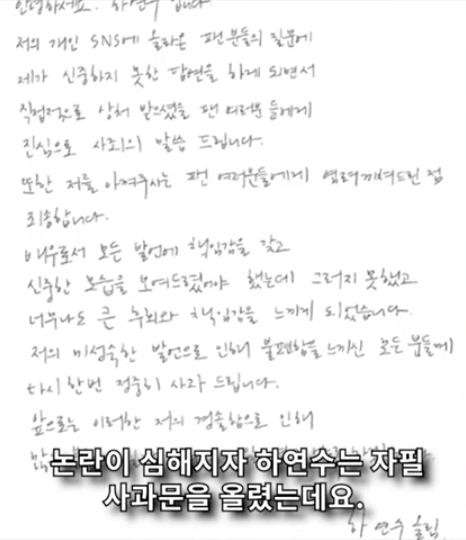 안녕하세요. 하연수 입니다.
저의 개인 SNS에 올라온 팬분들의 질문에
제가 신중하지 못한 답변을 하게 되면서
직접적으로 상처 받으셨을 팬 여러분들에게
진심으로 사죄의 말씀 드립니다.
또한 저를 아껴주시는 팬 여러분들에게 염려 끼쳐드린 점
죄송합니다.
배우로서 모든 발언에 책임감을 갖고
신중한 모습을 보여드렸어야 했는데 그러지 못했고
너무나도 큰 후회와 책임감을 느끼게 되었습니다.
저의 미성숙한 발언으로 인해 불편함을 느끼신 모든 분들께
다시 한번 정중히 사과 드립니다.
앞으로는 이러한 저의 경솔함으로 인해
논란이 심해지자 하연수는 자필
사과문을 올렸는데요.
하연수 올림.